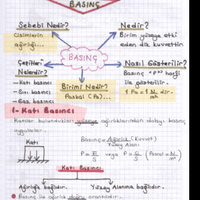 BASINÇ
Sebebi Nedir?
Cisimlerin
ağırlığı...
Nedir?
Birim yüzeye etki
eden dik kuvvettir.
BASINÇ
Çeşitleri
Nelerdir?
- Katı Basıncı
- Sıvı Basıncı
- Gaz Basıncı
Birimi Nedir?
Paskal (Pa)...
Nasıl Gösterilir?
Basınç "P" harfi
ile gösterilir.
1 Pa = 1 N/m²
1- Katı Basıncı
Katılar bulundukları yüzeye ağırlıklarından dolayı basınç
uygularlar.
Katı
Basınç = Ağırlık (Kuvvet) / Yüzey Alanı
P = G/S veya P = F/S (Paskal = N/m²)
Katı Basıncı
Ağırlığa Bağlıdır.
Yüzey Alanına Bağlıdır.
Basınç ile ağırlık doğru orantılıdır.